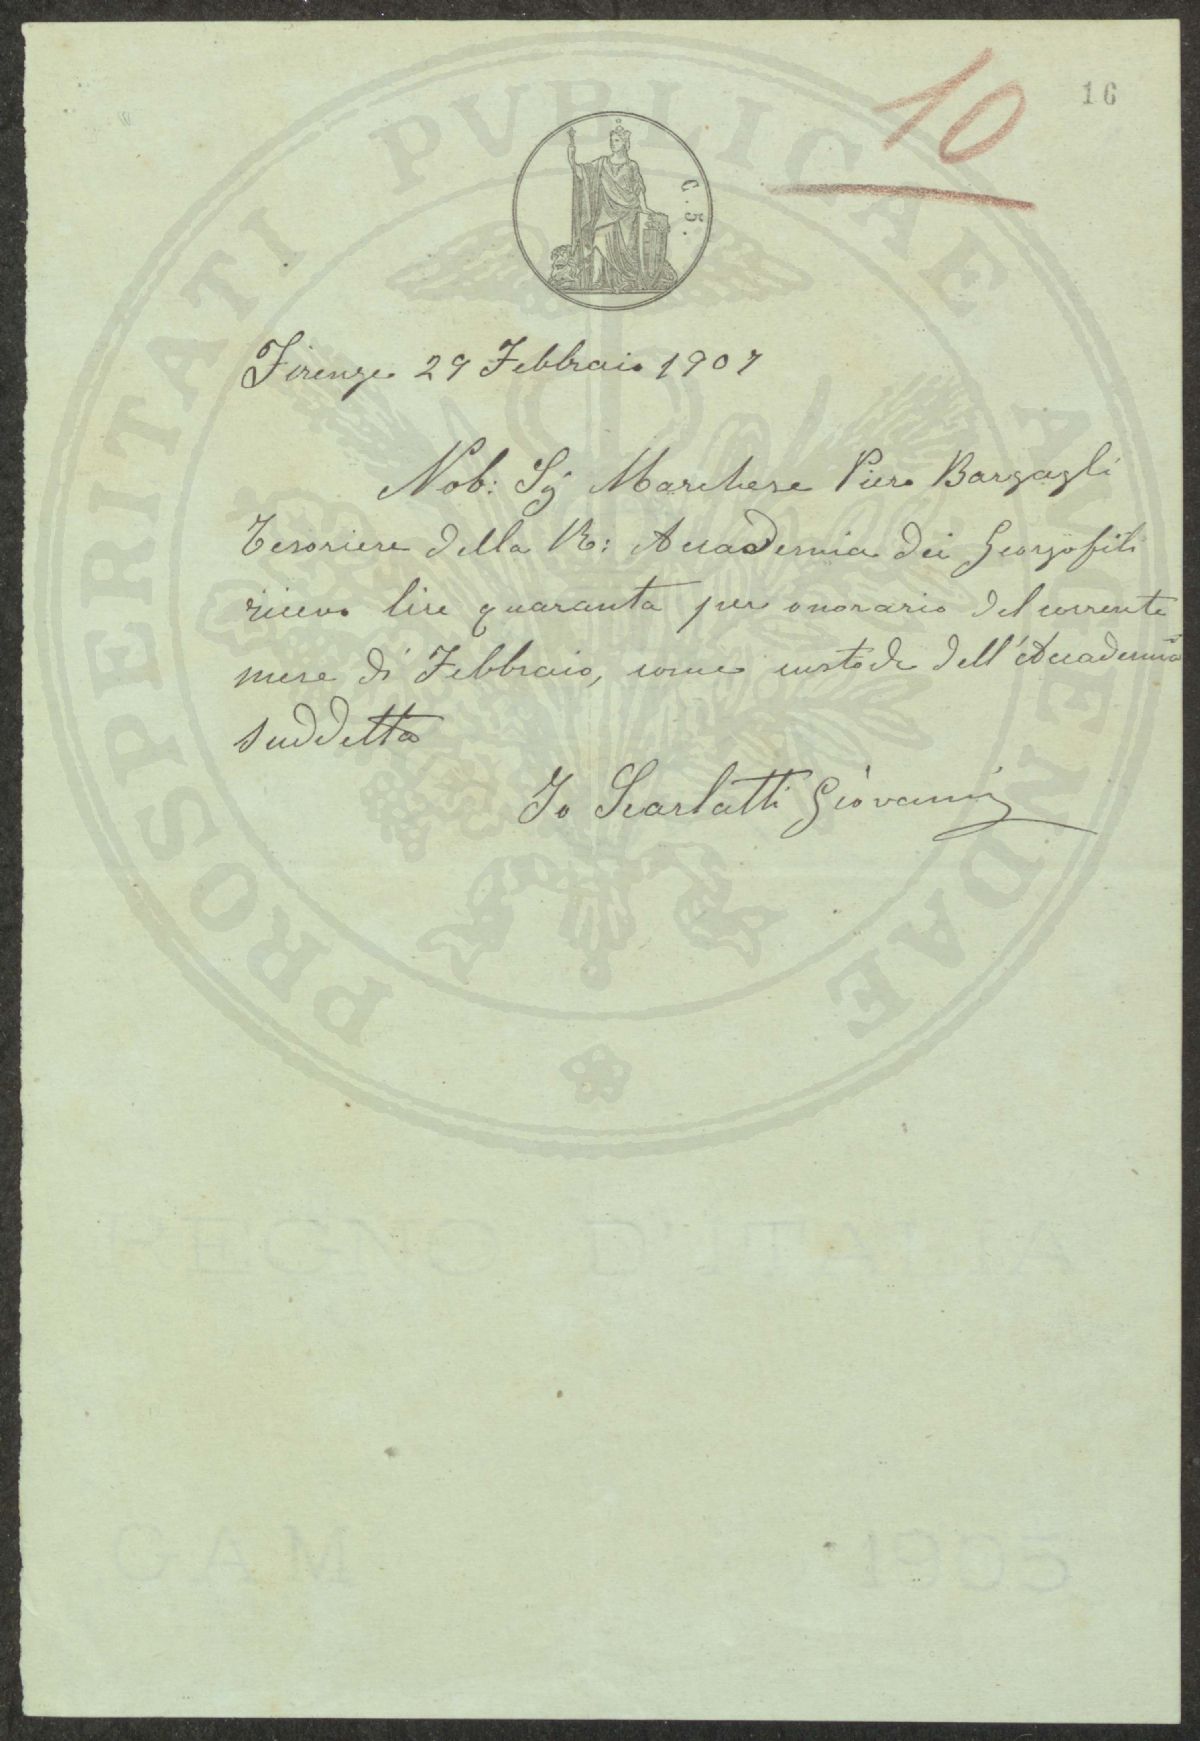 16
10
C. 5.
PROSPERITATI PVBLICAE AVGENDAE
Firenze 29 Febbraio 1907
Nob: Sig Marchese Piero Bargagli
Tesoriere della R: Accademia dei Georgofili
ricevo lire quaranta per onorario del corrente
mese di Febbraio, come custode dell'Accademia
suddetta
Io Scarlatti Giovanni
REGNO D'ITALIA
GAM 1905